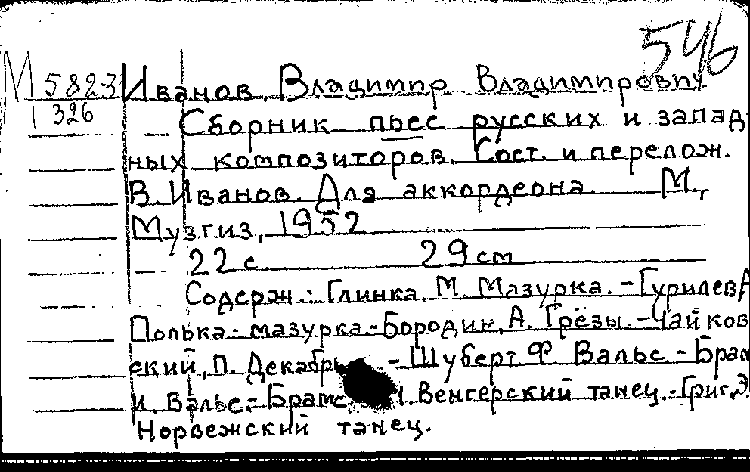 546
М 5823 Иванов, Владимир Владимирович
326
Сборник пьес русских и запад-
ных композиторов. Сост. и перелож.
В. Иванов. Для аккордеона. М.,
Музгиз, 1952
22 с. 29 см
Содерж.: Глинка, М. Мазурка. - Гурилев, А
Полька-мазурка. - Бородин, А. Грёзы. - Чайков
ский, П. Декабрь - Шуберт, Ф. Вальс. - Брам
И. Вальс. - Брамс И. Венгерский танец. - Григ, Э.
Норвежский танец.